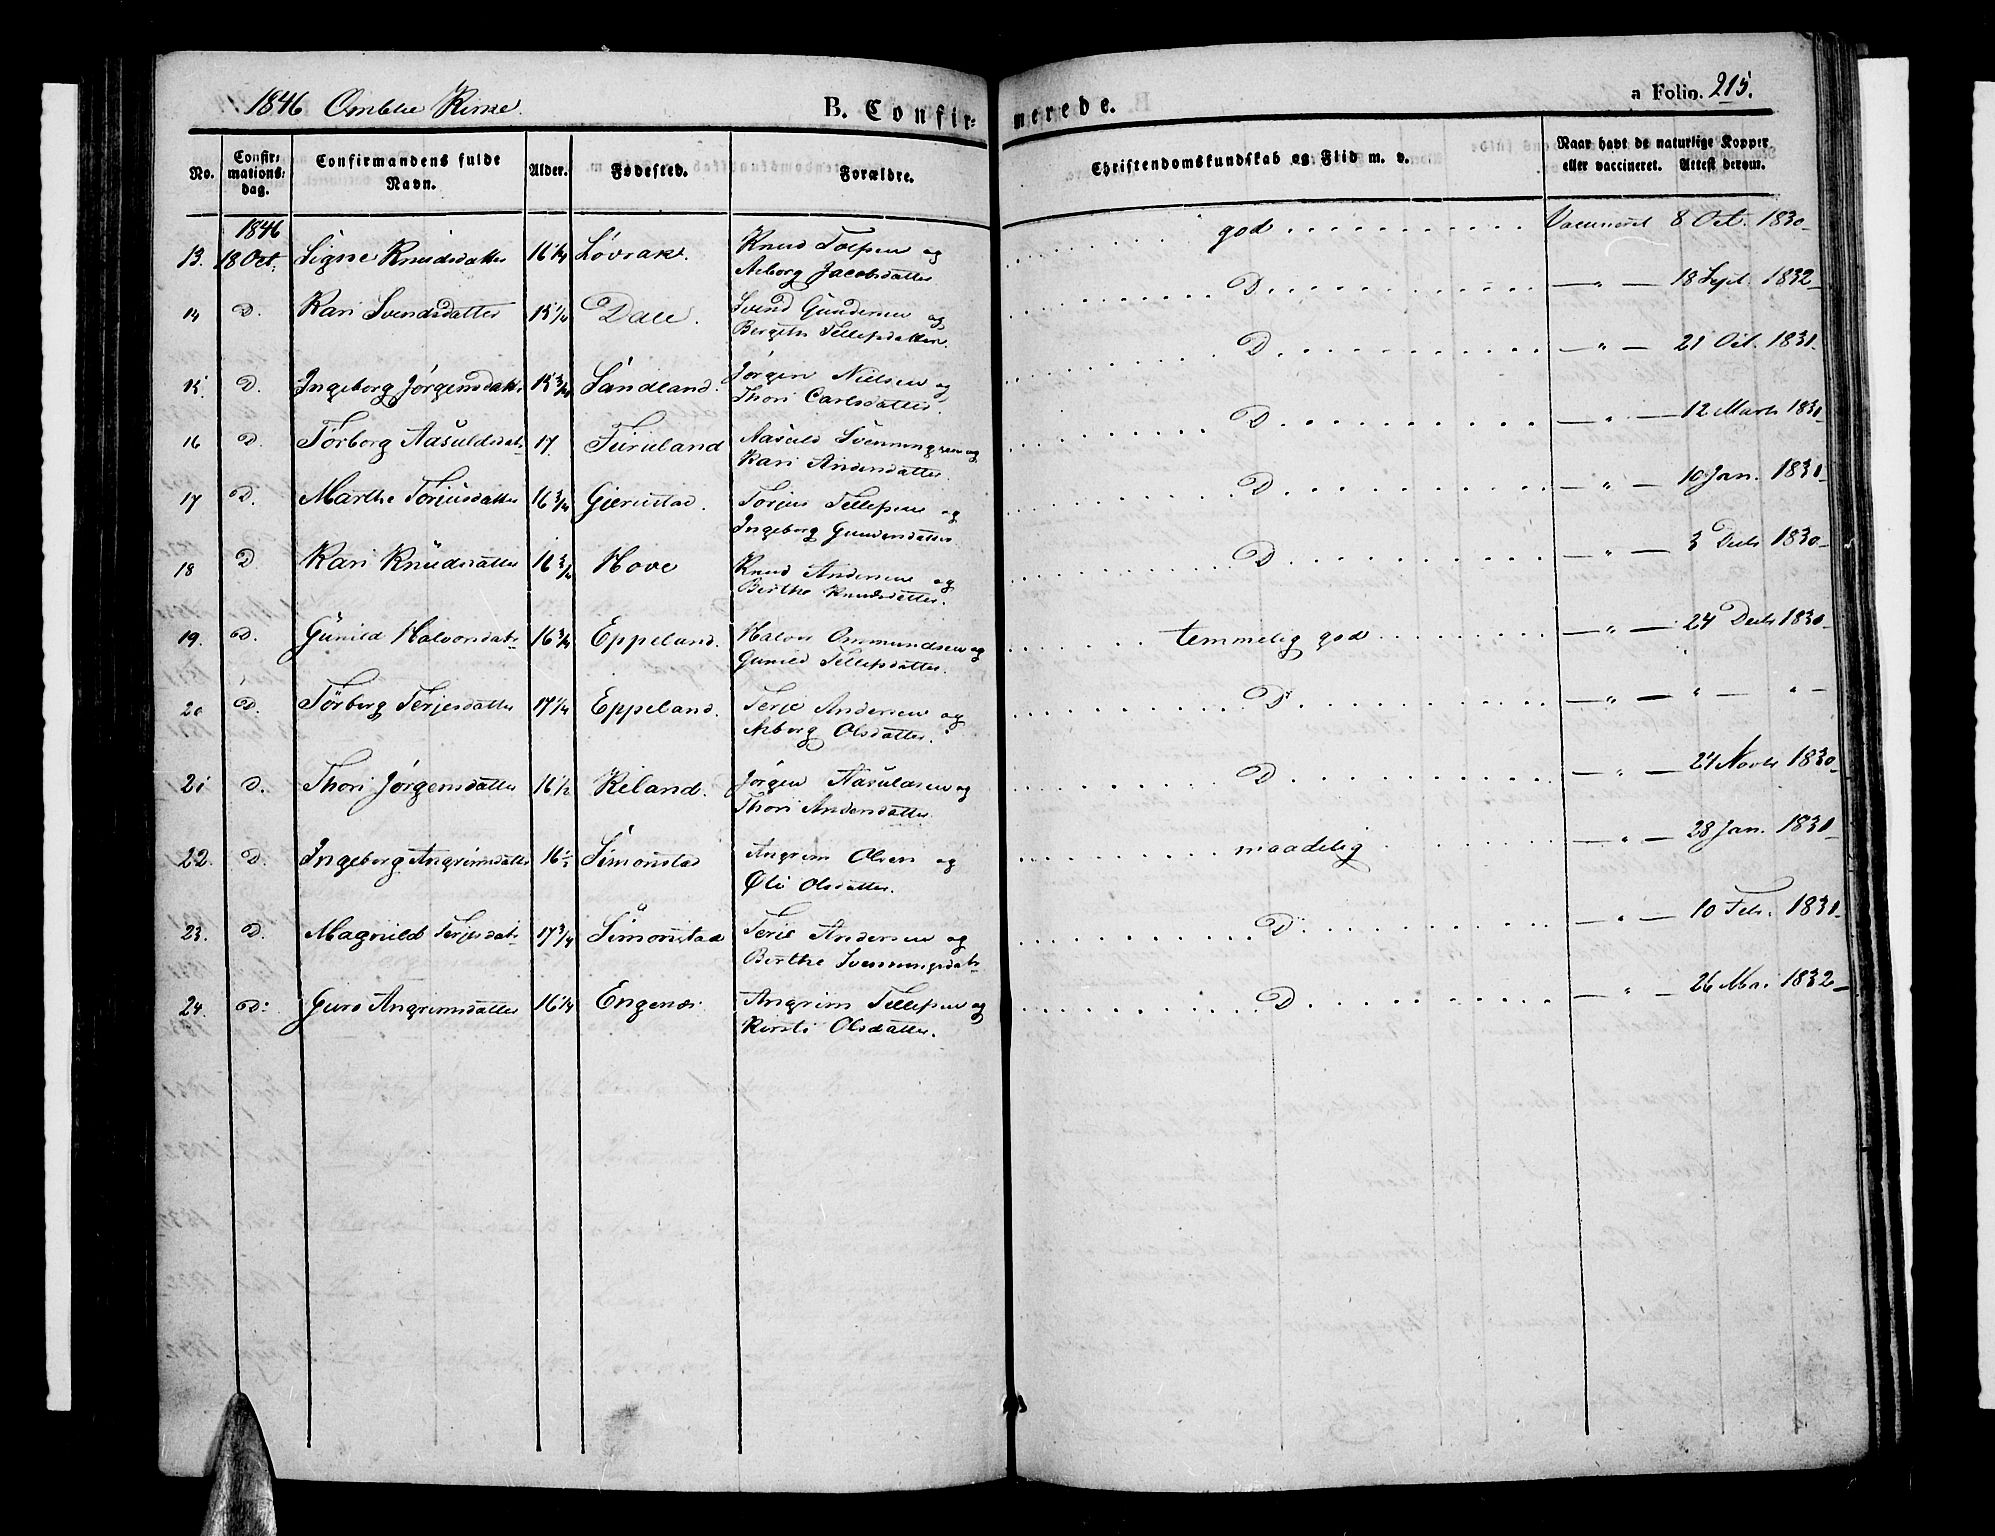 1846 Omblie Kirke.
B. Confirmerede.
a Folio. 215.
No.
Confirmationsdag.
Confirmandens fulde Navn.
Alder.
Fødested.
Forældre.
Christendomskundskab og Flid m. v.
Naar havt de naturlige Kopper
eller vaccineret. Attest derom.
1846
13. 18 Oct. Signe Knudsdatter 16 1/4 Løvrak. Knud Tolfsen og
Asborg Jacobsdatter
god Vaccineret 8 Oct. 1830
14 D. Kari Svendsdatter 15 1/4 Dale. Svend Gundersen og
Bergith Tellefsdatter.
D. — " — 18 Sept. 1832
15 D. Ingeborg Jørgensdatr 15 3/4 Sandland. Jørgen Nielsen og
Thori Carlsdatter.
D — " — 21 Oct. 1831.
16 D. Torborg Aasuldsdatr 17. Furuland Aasuld Svenningsen og
Kari Andersdatter
D — " — 12 Marts 1831
17 D. Marthe Torjusdatter 16 3/4 Gjerustad. Torjus Tellefsen og
Ingeborg Gundersdatter
D — " — 10 Jan. 1831
18 D Kari Knudsdatter 16 3/4 Hove Knud Andersen og
Berthe Knudsdatter.
D — " — 3 Decb 1830
19. D. Gunild Halvorsdatr 16 3/4 Eppeland. Halvor Ommundsen og
Gunild Tellefsdatter.
temmelig god — " — 24 Decb 1830
20 D. Torborg Terjesdatter 17 1/4 Eppeland. Terje Andersen og
Asborg Olsdatter.
D — " — " — " —
21 D. Thori Jørgensdatter 16 1/2 Reland. Jørgen Aasuldsen og
Thori Andersdatter
D — " — 24 Novb 1830
22. D. Ingeborg Angrimsdatter 16 1/2 Simonstad Angrim Olsen og
Oli Olsdatter.
maadelig — " — 28 Jan. 1831
23. D. Magnild Terjesdatr 17 3/4 Simonstad Terje Andersen og
Berthe Svenningsdatr
D — " — 10 Feb. 1831
24. D. Guro Angrimsdatter 16 1/4 Engenæs Angrim Tellefsen og
Kirsti Olsdatter.
D — " — 26 Mai 1832